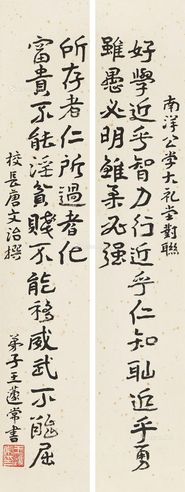 南洋公学大礼堂對聯
好學近乎智力行近乎仁知耻近乎勇
雖愚必明雖柔必强
所存者仁所過者化
富貴不能淫貧賤不能移威武不能屈
校長唐文治撰
弟子王蘧常書